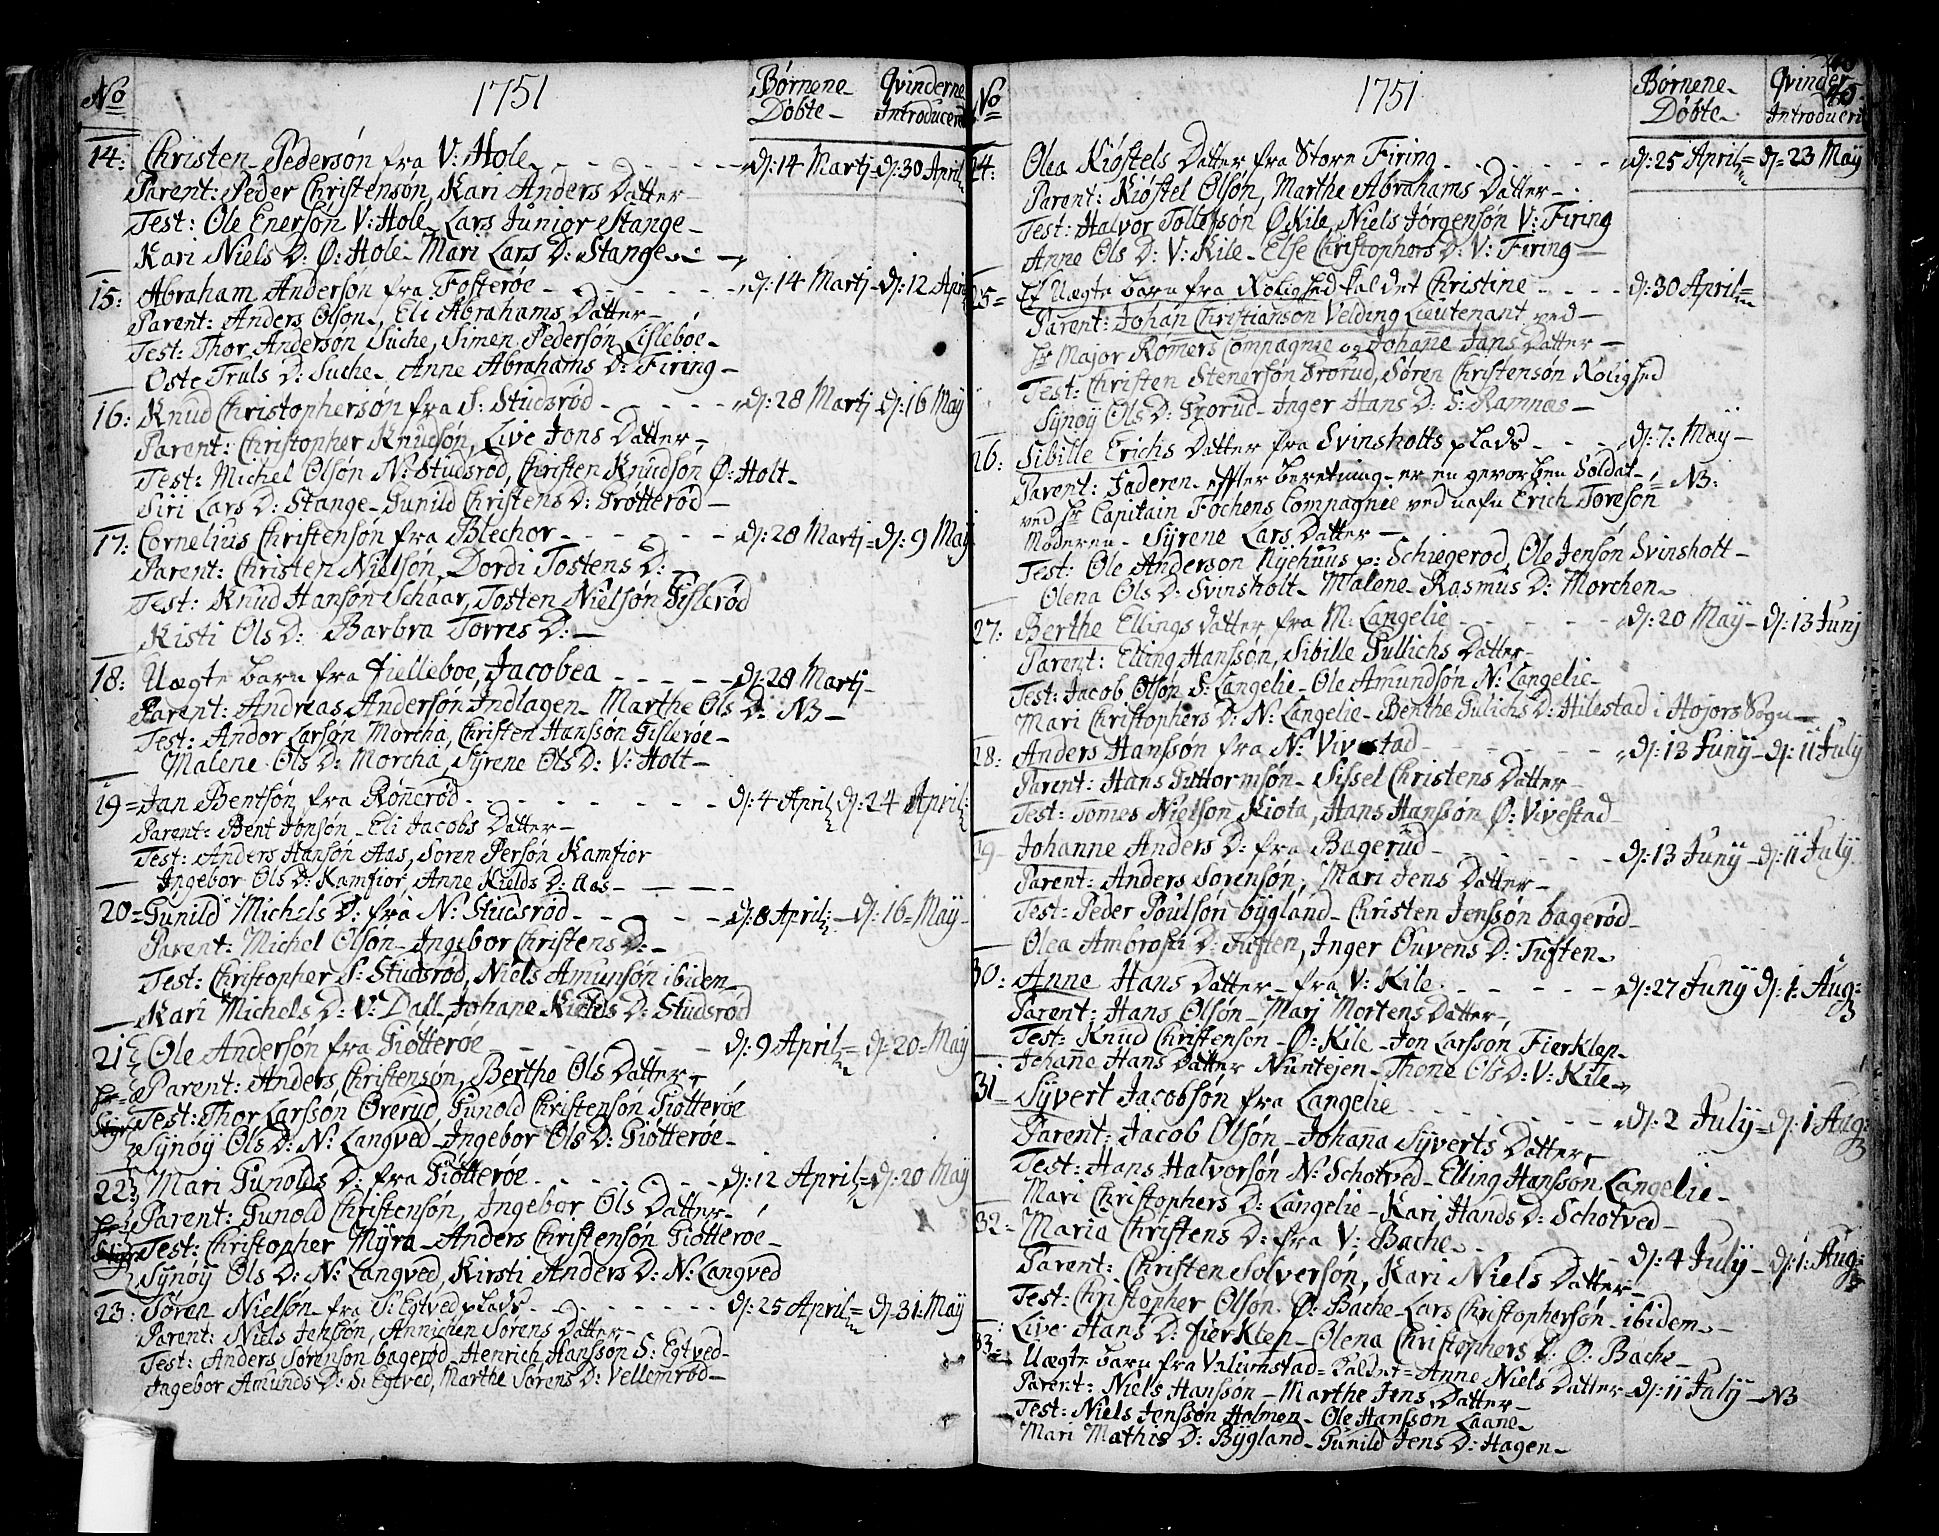 No 1751 Børnene Døbte Qvinderne Introducered
14: Christen Pedersøn fra V: Hole - - - - d: 14 Martj d: 30 April
Parent: Peder Christensøn, Kari Anders Datter
Test: Ole Enersøn V: Hole, Lars Junior Stange
Kari Niels D: Ø: Hole. Mari Lars D: Stange
15: Abraham Andersøn fra Fosterøe - - - d: 14 Martj d: 12 April
Parent: Anders Olsøn, Eli Abrahams Datter
Test: Thor Andersøn Suche, Simen Pedersøn Lisleboe
Oste Truls D: Suche. Anne Abrahams D: Firing
16: Knud Christophersøn fra S: Studsrød - - - d: 28 Martj d: 16 May
Parent: Christopher Knudsøn, Live Jons Datter
Test: Michel Olsøn N: Studsrød, Christen Knudsøn Ø: Holt
Siri Lars D: Stange - Gunild Christens D: Trotterød
17: Cornelius Christensøn fra Blechor - - - d: 28 Martj d: 9 May
Parent: Christen Nielsøn, Dordi Tostens D:
Test: Knud Hansøn Schaar, Tosten Nielsøn Gislerød
Kisti Ols D: Barbra Torres D:
18: Uægte barn fra Fielleboe, Jacobea - - - d: 28 Martj
Parent: Andreas Andersøn Indlagen. Marthe Ols D: NB
Test: Andor Larsøn Morcha, Christen Hanssøn Gislerøe
Malene Ols D: Morcha, Syrene Ols D: V: Holt
19 = Jan Bentsøn fra Rønnerød - - - d: 4 April d: 24 April:
Parent: Bent Jonsøn - Eli Jacobs Datter
Test: Anders Hansøn Aas, Søren Persøn Kamfior
Ingebor Ols D: Kamfior, Anne Kields D: Aas
20 = Gunild Michels D: fra N: Studsrød - - - d: 8 April: d: 16 May
Parent: Michel Olsøn - Ingebor Christens D:
Test: Christopher S: Studsrød, Niels Amunsøn ibidem
Kari Michels D: V: Dall, Johane Kields D: Studsrød
21 Ole Andersøn fra Giøtterøe - - - d: 9 April d: 20 May
Parent: Anders Christensøn, Berthe Ols Datter
Test: Thor Larssøn Ørerud, Gunold Christensøn Giøtterøe
Synøy Ols D: N: Langved, Ingebor Ols D: Giøtterøe
22 Mari Gunolds D: fra Giøtterøe - - - d: 12 April d: 20 May
Parent: Gunold Christensøn, Ingebor Ols Datter
Test: Christopher Myra - Anders Christensøn Giøtterøe
Synøy Ols D: N: Langved, Kirsti Anders D: N: Langved
23: Søren Nielsøn fra S: Egtved plads - - - d: 25 April d: 31 May
Parent: Niels Jenssøn, Annichen Sørens Datter
Test: Anders Sørensøn bagerød, Henrich Hanssøn S: Egtved
Ingebor Amunds D: S: Egtved, Marthe Sørens D: Vellemrød
No 1751 Børnene Døbte Qvinder Introducerte 45
24: Olea Kiøstels Datter fra Store Firing - - - d: 25 April d: 23 May
Parent: Kiøstel Olsøn, Marthe Abrahams Datter
Test: Halvor Tollefsøn Ø: Kile, Niels Jørgensøn V: Firing
Anne Ols D: V: Kile - Else Christophers D: V: Firing
25 = Et Uægte barn fra Rolighed kaldet Christine - - - d: 30 April
Parent: Johan Christianson Velding Lieutenant ved
Hr Major Rømers Compagnie og Johanne Jans Datter
Test: Christen Stenersøn Frorud, Søren Christensøn Rolighed
Synøy Ols D: Frorud - Inger Hans D: S: Ramnæs
26: Sibille Erichs Datter fra Svinsholts plads - - - d: 7: May
Parent: Faderen - effter beretning - er en gevorben Soldat NB:
ved Hr Capitain Fochens Compagnie ved nafn Erich Toresøn
Moderen - Syrene Lars Datter
Test: Ole Anderson Nyehuus p: Schiegerød, Ole Jensøn Svinsholt
Olena Ols D: Svinsholt - Malene Rasmus D: Morchen
27: Berthe Ellings Datter fra M: Langelie - - - d: 20 May d: 13 Junj
Parent: Elling Hanssøn, Sibille Gullichs Datter
Test: Jacob Olsøn S: Langelie - Ole Amundsøn N: Langelie
Mari Christophers D: N: Langelie - Benthe Gulichs D: Hilestad i Hojors Sogn
28: Anders Hanssøn fra N: Vivestad - - - d: 13 Juny d: 11 July
Parent: Hans Guttormsøn - Sissel Christens Datter
Test: Tomes Nielsøn Kiota, Hans Hanssøn Ø: Vivestad
29 Johanne Anders D: fra Bagerud - - - d: 13 Juny d: 11 July
Parent: Anders Sørensøn, Mari Jens Datter
Test: Peder Poulsøn bygland - Christen Jenssøn bagerød
Olea Ambrosii D: Tuften, Inger Ouvens D: Tuften
30: Anne Hans Datter fra V: Kile - - - d: 27 Juny d: 1 Aug:
Parent: Hans Olsøn - Mari Mortens Datter
Test: Knud Christensøn - Ø: Kile - Jon Larssøn Fierklep
Johanne Hans Datter Nuntejen - Thone Ols D: V: Kile
31 Syvert Jacobsøn fra Langelie - - - d: 2 July d: 1 Aug:
Parent: Jacob Olsøn - Johana Syverts Datter
Test: Hans Halvorsøn N: Schotved - Elling Hansson Langelie
Mari Christophers D: Langelie - Kari Hands D: Schotved
32 Maria Christens D: fra V: Bache - - - d: 4 July d: 1 Aug:
Parent: Christen Solversøn, Kari Niels Datter
Test: Christopher Olsøn Ø: Bache - Lars Christophersøn ibidem
Live Hans D: Fierklep - Olena Christophers D: Ø: Bache
33 Uægte barn fra Valumstad kaldet Anne Niels Datter d: 11 July NB
Parent: Niels Hanssøn - Marthe Jens Datter
Test: Niels Jenssøn Holmen - Ole Hanssøn Laane
Mari Mathis D: Bygland - Gunild Jens D: Hagen